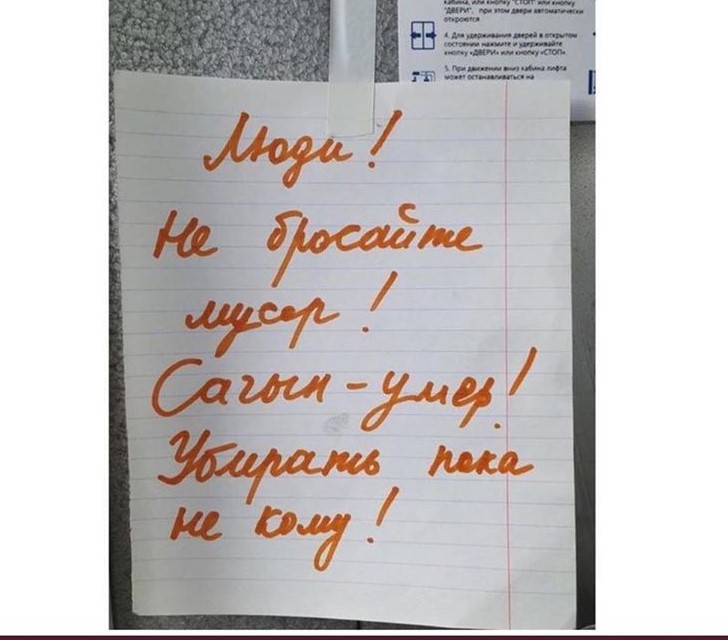 кабина, или кнопку "СТОП" или кнопку
"ДВЕРИ", при этом двери автоматически
откроются
4. Для удерживания дверей в открытом
состоянии нажмите и удерживайте
кнопку «ДВЕРИ» или кнопку «СТОП».
5. При движении вниз кабина лифта
может останавливаться на
Люди!
Не бросайте
мусор!
Сагын-умер!
Убирать пока
не кому!